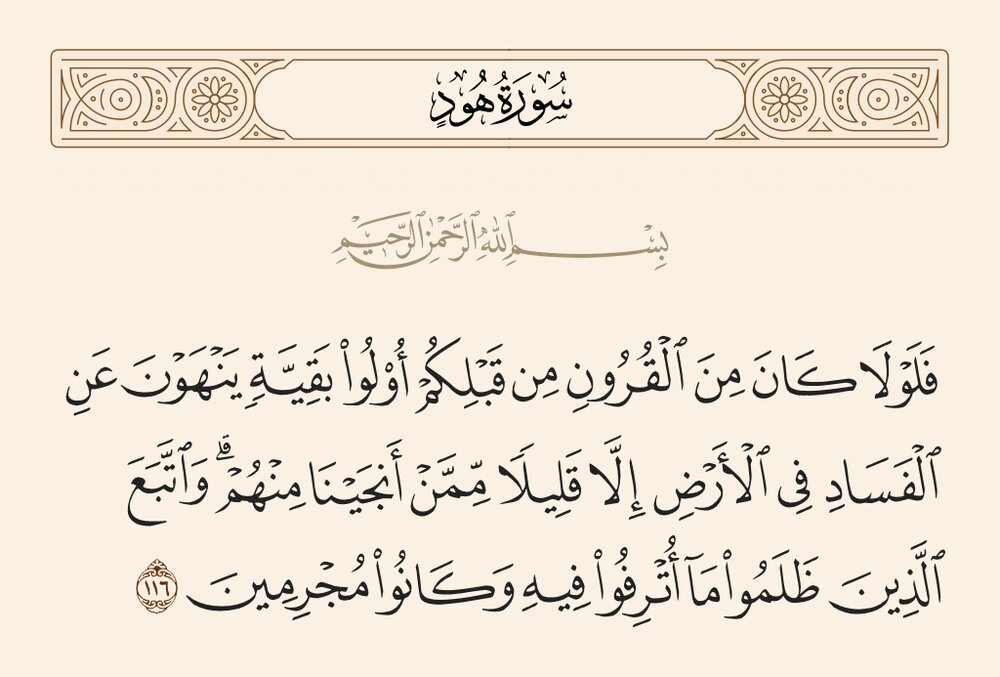 سُورَةُ هُودٍ
بِسْمِ ٱللَّهِ ٱلرَّحْمَٰنِ ٱلرَّحِيمِ
فَلَوْلَا كَانَ مِنَ ٱلْقُرُونِ مِن قَبْلِكُمْ أُو۟لُوا۟ بَقِيَّةٍ يَنْهَوْنَ عَنِ
ٱلْفَسَادِ فِى ٱلْأَرْضِ إِلَّا قَلِيلًا مِّمَّنْ أَنجَيْنَا مِنْهُمْ ۗ وَٱتَّبَعَ
ٱلَّذِينَ ظَلَمُوا۟ مَآ أُتْرِفُوا۟ فِيهِ وَكَانُوا۟ مُجْرِمِينَ ١١٦